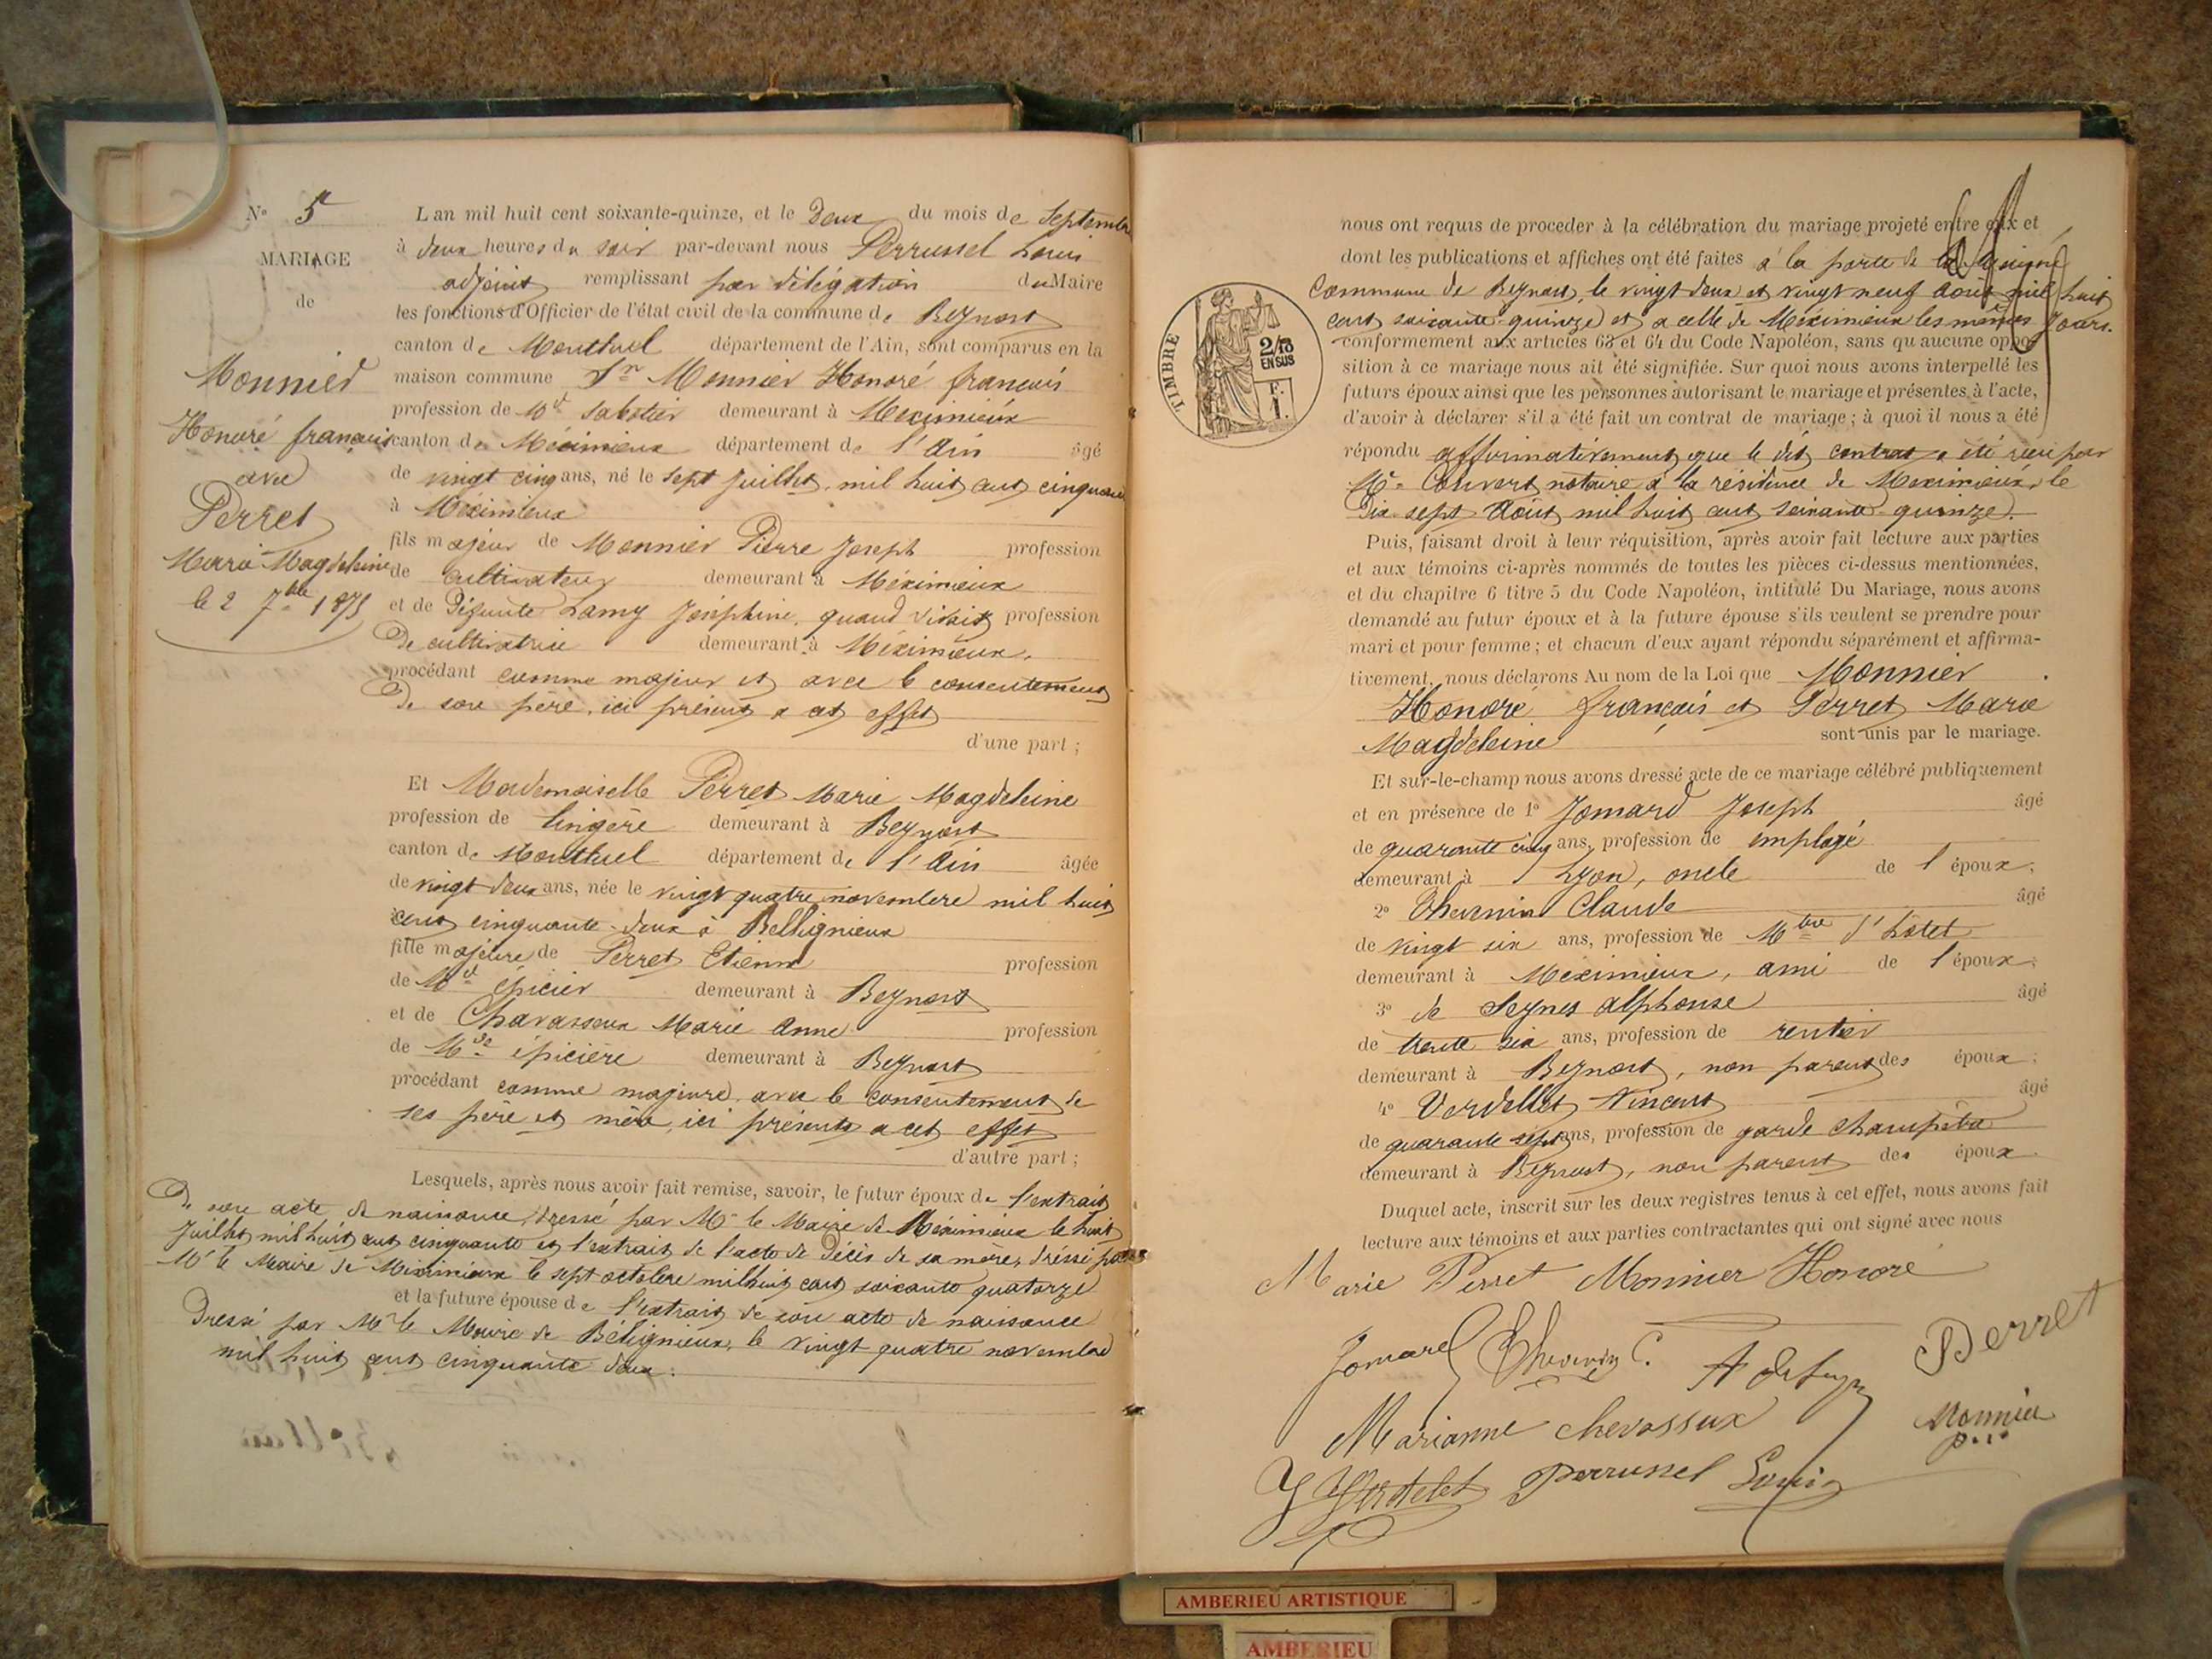 No 5
MARIAGE
de
Monnier
Honoré françois
avec
Perret
Marie Magdeleine
le 2 7bre 1875
L an mil huit cent soixante-quinze, et le Deux du mois de Septembre
à deux heures du soir par-devant nous Perrussel Louis
adjoint remplissant par délégation du Maire
les fonctions d'Officier de l'état civil de la commune de Beynost
canton de Montluel département de l'Ain, sont comparus en la
maison commune Sr Monnier Honoré françois
profession de Md Sabotier demeurant à Meximieux
canton de Méximieux département de l'Ain âgé
de vingt cinq ans, né le sept Juillet mil huit cent cinquante
à Méximieux
fils majeur de Monnier Pierre Joseph profession
de cultivateur demeurant à Méximieux
et de Défunte Lamy Joséphine, quand vivait profession
De cultivatrice demeurant à Méximieux.
procédant comme majeur et avec le consentement
De son père, ici présent a cet effet
d'une part ;
Et Mademoiselle Perret Marie Magdeleine
profession de lingère demeurant à Beynost
canton de Montluel département de l'Ain âgée
de vingt deux ans, née le vingt quatre novembre mil huit
cent cinquante-deux à Bellignieux
fille majeure de Perret Etienne profession
de Md épicier demeurant à Beynost
et de Chavasseux Marie Anne profession
de Mde épicière demeurant à Beynost
procédant comme majeure, avec le consentement de
ses père et mère, ici présents a cet effet
d'autre part ;
Lesquels, après nous avoir fait remise, savoir, le futur époux de l'extrait
De son acte de naissance, dressé par Mr le Maire de Méximieux le huit
Juillet mil huit cent cinquante et l'extrait de l'acte de Décès de sa mère, dressé par
Mr le Maire de Meximieux le sept octobre mil huit cent soixante quatorze
et la future épouse de l'extrait de son acte de naissance
Dressé par Mr le Maire de Béligneux, le vingt quatre novembre
mil huit cent cinquante deux.
nous ont requis de proceder à la célébration du mariage projeté entre eux et
dont les publications et affiches ont été faites à la porte de la
Commune de Beynost, le vingt deux et vingt neuf Août mil huit
cent soixante-quinze et a celle de Méximieux les mêmes Jours.
conformement aux articles 63 et 64 du Code Napoléon, sans qu aucune oppo-
sition à ce mariage nous ait été signifiée. Sur quoi nous avons interpellé les
futurs époux ainsi que les personnes autorisant le mariage et présentes à l'acte,
d'avoir à déclarer s'il a été fait un contrat de mariage ; à quoi il nous a été
répondu affirmativement que le dit contrat a été reçu par
Me Convert notaire à la résidence de Meximieux, le
Dix sept Août mil huit cent soixante-quinze.
TIMBRE
2/10
EN SUS
F.
1.
Puis, faisant droit à leur réquisition, après avoir fait lecture aux parties
et aux témoins ci-après nommés de toutes les pièces ci-dessus mentionnées,
et du chapitre 6 titre 5 du Code Napoléon, intitulé Du Mariage, nous avons
demandé au futur époux et à la future épouse s'ils veulent se prendre pour
mari et pour femme ; et chacun d'eux ayant répondu séparément et affirma-
tivement, nous déclarons Au nom de la Loi que Monnier
Honoré françois et Perret Marie
Magdeleine sont unis par le mariage.
Et sur-le-champ nous avons dressé acte de ce mariage célébré publiquement
et en présence de 1o Jomard Joseph âgé
de quarante cinq ans, profession de employé
demeurant à Lyon, oncle de l époux;
2o Thevenin Claude âgé
de vingt six ans, profession de Mtre d'hôtel
demeurant à Meximieux, ami de l époux;
3o de Seynes alphonse âgé
de trente six ans, profession de rentier
demeurant à Beynost, non parent des époux;
4o Verdellet Vincent âgé
de quarante sept ans, profession de garde champêtre
demeurant à Beynost, non parent des époux
Duquel acte, inscrit sur les deux registres tenus à cet effet, nous avons fait
lecture aux témoins et aux parties contractantes qui ont signé avec nous
Marie Perret Monnier Honoré
Jomard Thevenin C. Perret
Marianne chevassux Monnier
Verdelet Perrussel Louis
AMBERIEU ARTISTIQUE
AMBERIEU